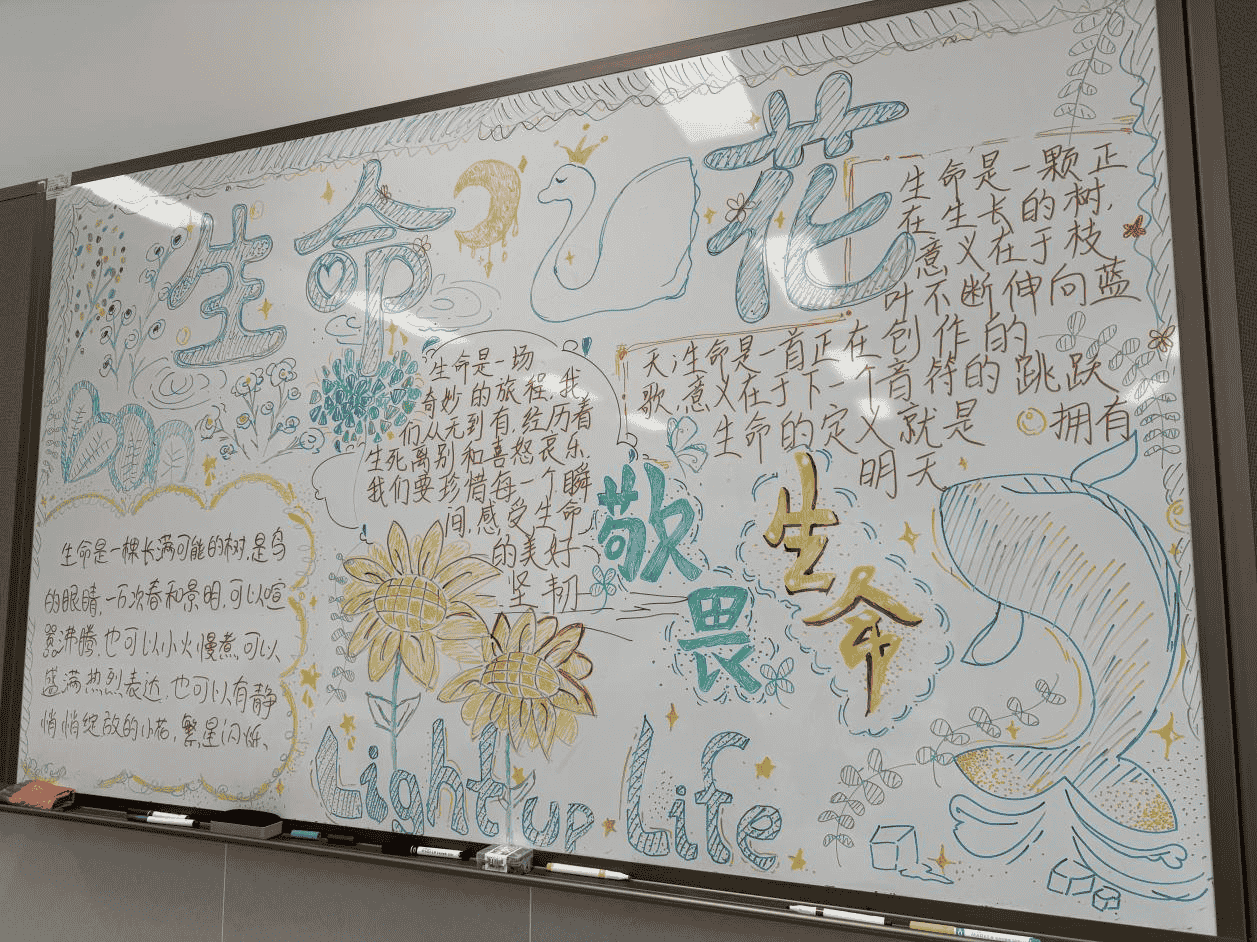 生命 花
生命是一颗正
在生长的树,
意义在于枝
叶不断伸向蓝
天;生命是一首正在创作的
歌,意义在于下一个音符的跳跃
生命的定义就是 拥有
明天
生命是一场
奇妙的旅程,我
们从无到有,经历着
生死离别和喜怒哀乐.
我们要珍惜每一个瞬
间,感受生命
的美好
坚韧
敬畏
生命
生命是一棵长满可能的树,是鸟
的眼睛,一万次春和景明,可以喧
嚣沸腾,也可以小火慢煮,可以
盛满热烈表达,也可以有静
悄悄绽放的小花,繁星闪烁、
Light up Life